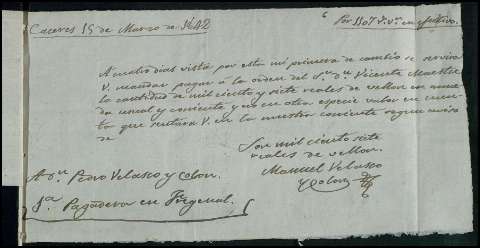 Caceres 15 de Marzo de 1842
Por 1107 rs. vn. en efectivo.
A cuatro dias vista por esta mi primera de cambio se servira
V. mandar pagar á la orden del Sr. Dn. Vicente Maestre
la cantidad de mil ciento y siete reales de vellon en mone
da usual y corriente y no en otra especie valor en cuen
ta que sentará V. en la nuestra corriente segun aviso
de
Son mil ciento siete
reales de vellon.
Manuel Velasco
y Colon
A Dn. Pedro Velasco y Colon.
1ª Pagadera en Fregenal.